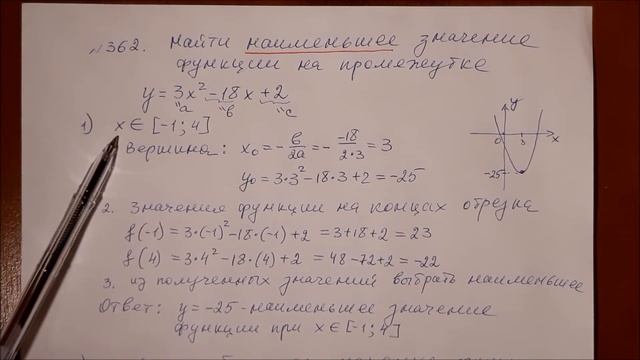 №362. Найти наименьшее значение
функции на промежутке
y = 3x² -18x +2
"a "в "c
1) x ∈ [-1; 4]
Вершина: x₀ = - в/2a = - -18/2·3 = 3
y₀ = 3·3² - 18·3 + 2 = -25
y
0 3 x
-25
2. Значения функции на концах отрезка
f(-1) = 3·(-1)² - 18·(-1) + 2 = 3 + 18 + 2 = 23
f(4) = 3·4² - 18·(4) + 2 = 48 - 72 + 2 = -22
3. из полученных значений выбрать наименьшее
Ответ: y = -25 - наименьшее значение
функции при x ∈ [-1; 4]